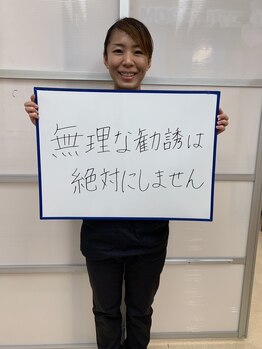 無理な勧誘は
絶対にしません